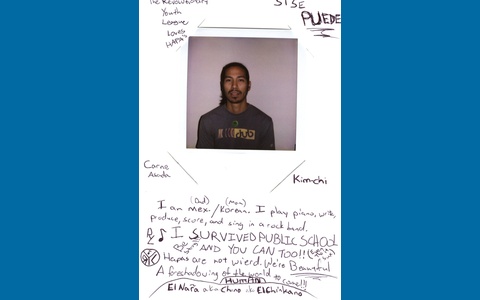 The Revolutionary
Youth
League
Loves
HAPA's
SI SE
PUEDE
dub
Carne
Asada
Kim-chi
(Dad) (Mom)
I am mex./Korean. I play piano, write,
produce, score, and sing in a rock band.
I SURVIVED PUBLIC SCHOOL
AND YOU CAN TOO!!
Hapas are not wierd. We're Beautiful
A foreshadowing of the world to come!!!
HUMAN
El Napa a.k.a Chino a.k.a El Chinkano